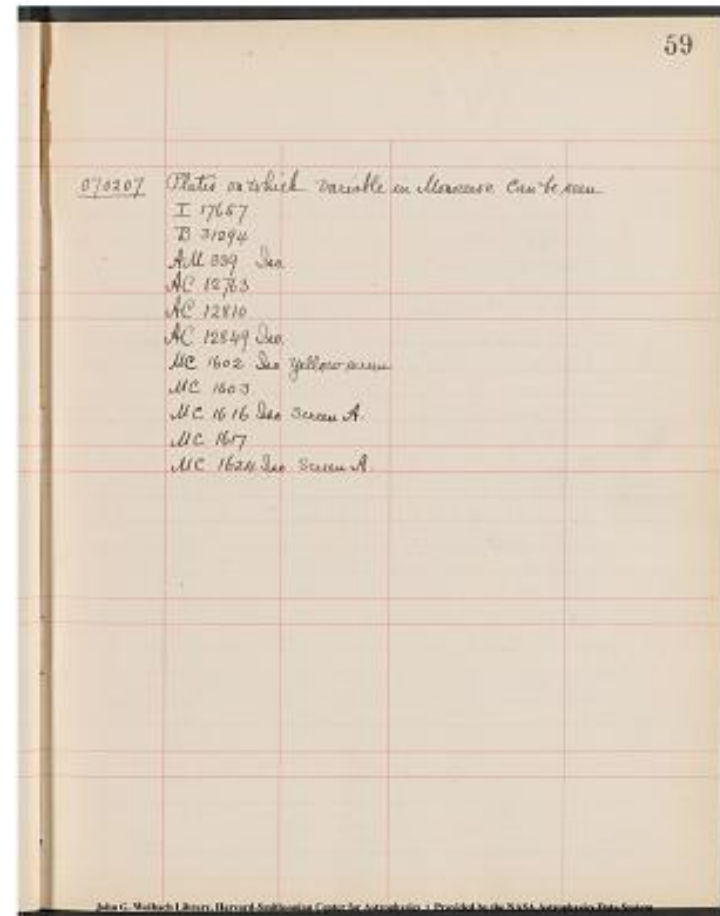 59
070207 Plates on which variable in Monoceros can be seen
I 17657
B 31294
AM 339 Iso
AC 12763
AC 12810
AC 12849 Iso.
MC 1602 Iso Yellow screen
MC 1603
MC 1616 Iso Screen A.
MC 1617
MC 1624 Iso Screen A
John G. Wolbach Library, Harvard-Smithsonian Center for Astrophysics • Provided by the NASA Astrophysics Data System